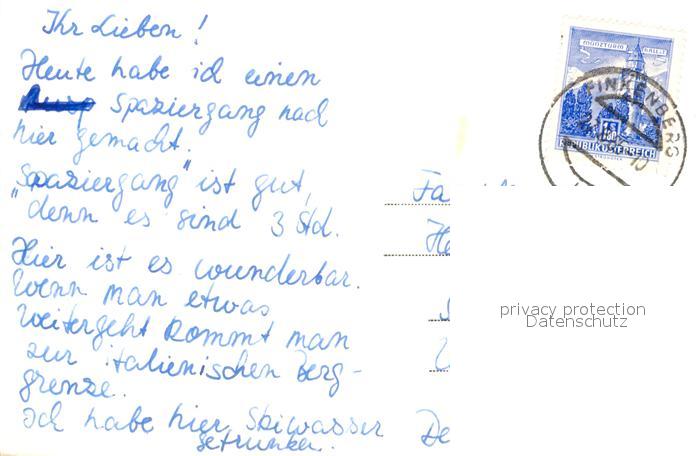 Ihr Lieben!
Heute habe ich einen
Spaziergang nach
hier gemacht.
"Spaziergang" ist gut,
denn es sind 3 Std.
Hier ist es wunderbar.
Wenn man etwas
weitergeht kommt man
zur italienischen Berg-
grenze.
Ich habe hier Skiwasser
getrunken.
MÜNZTURM HALL I. T.
1.80
REPUBLIK ÖSTERREICH
FINKENBERG
Fa
He
De
privacy protection
Datenschutz